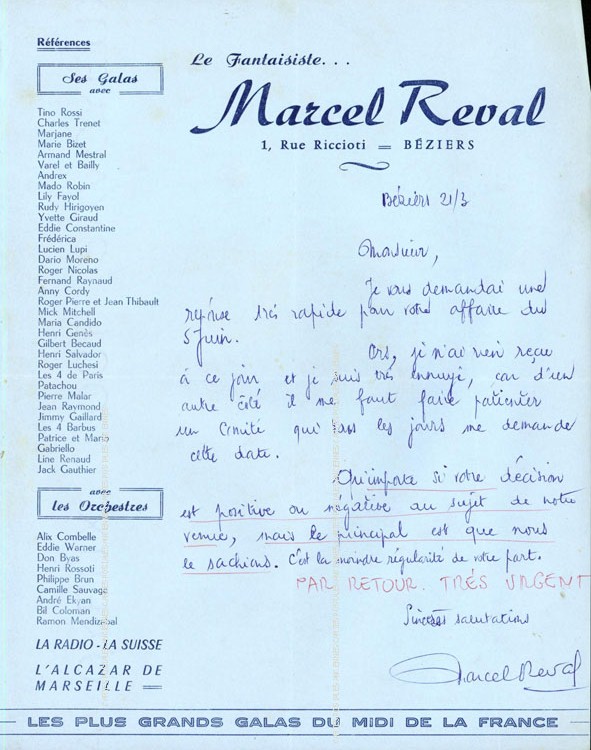 Références
Ses Galas
avec
Tino Rossi
Charles Trenet
Marjane
Marie Bizet
Armand Mestral
Varel et Bailly
Andrex
Mado Robin
Lily Fayol
Rudy Hirigoyen
Yvette Giraud
Eddie Constantine
Frédérica
Lucien Lupi
Dario Moreno
Roger Nicolas
Fernand Raynaud
Anny Cordy
Roger Pierre et Jean Thibault
Mick Mitchell
Maria Candido
Henri Genès
Gilbert Becaud
Henri Salvador
Roger Luchesi
Les 4 de Paris
Patachou
Pierre Malar
Jean Raymond
Jimmy Gaillard
Les 4 Barbus
Patrice et Mario
Gabriello
Line Renaud
Jack Gauthier
avec
les Orchestres
Alix Combelle
Eddie Warner
Don Byas
Henri Rossoti
Philippe Brun
Camille Sauvage
André Ekyan
Bil Coloman
Ramon Mendizabal
LA RADIO - LA SUISSE
L'ALCAZAR DE
MARSEILLE
Le Fantaisiste...
Marcel Reval
1, Rue Riccioti = BÉZIERS
Béziers 21/3
Monsieur,
Je vous demandai une
réponse très rapide pour votre affaire du
5 Juin.
Ors, je n'ai rien reçu
à ce jour et je suis très ennuyé, car d'un
autre côté il me faut faire patienter
un Comité qui tous les jours me demande
cette date.
Qu'importe si votre décision
est positive ou négative au sujet de notre
venue, mais le principal est que nous
le sachions. C'est la moindre régularité de votre part.
PAR RETOUR. TRÉS URGENT
Sincères salutations
Marcel Reval
LES PLUS GRANDS GALAS DU MIDI DE LA FRANCE